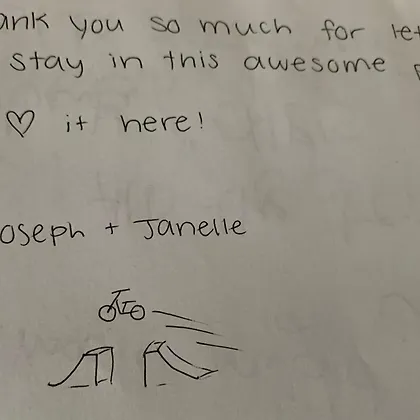 ank you so much for let
stay in this awesome p
♡ it here!
oseph + Janelle